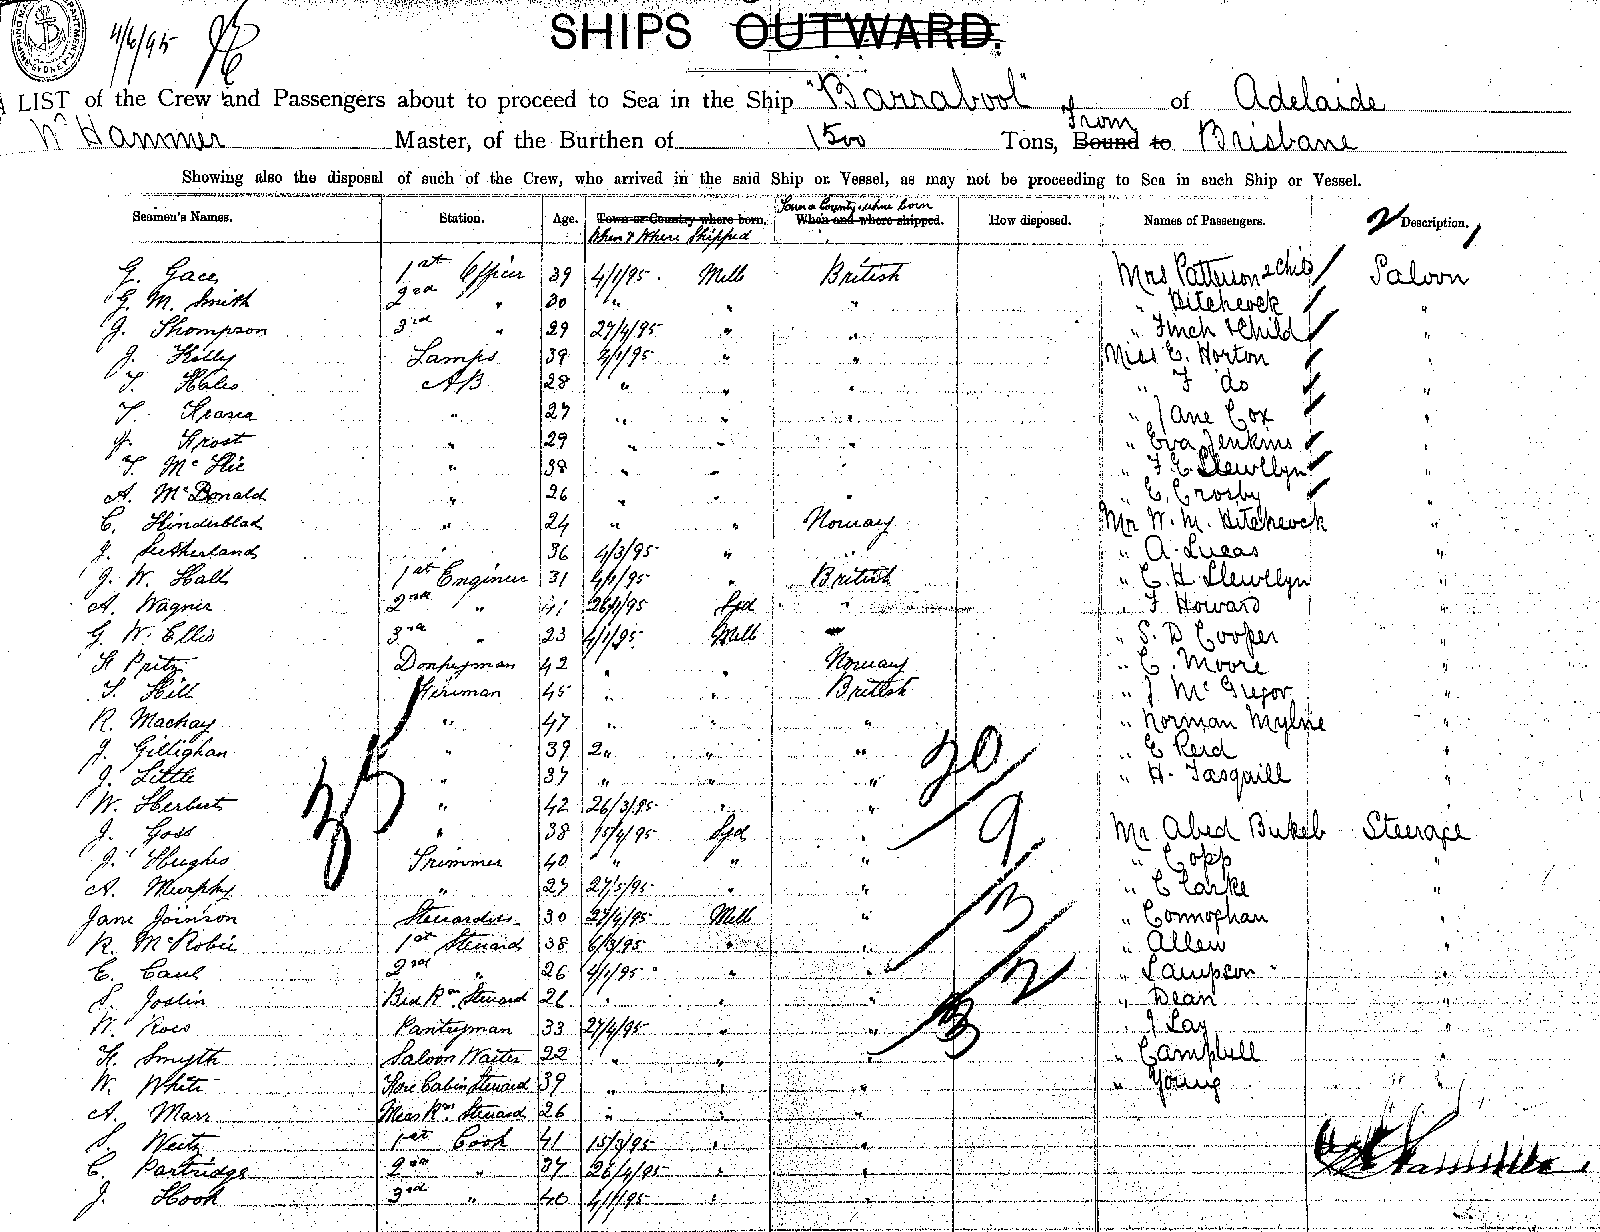 4/6/95
SHIPS OUTWARD.
LIST of the Crew and Passengers about to proceed to Sea in the Ship "Barrabool" of Adelaide
W Hammer Master, of the Burthen of 1500 Tons, Bound to From Brisbane
Showing also the disposal of such of the Crew, who arrived in the said Ship or Vessel, as may not be proceeding to Sea in such Ship or Vessel.
Seamen's Names. Station. Age. Town or Country where born. When & Where Shipped When and where shipped. Town or County where born How disposed. Names of Passengers. 2 Description. 1
G. Gace 1st Officer 39 4/1/95 Melb British Mrs Patterson & Child Saloon
G. M. Smith 2nd " 30 " " " " Hitchcock "
J. Thompson 3rd " 29 27/4/95 " " " Finch & Child "
J. Kelly Lamps 39 " " Miss E. Horton "
T. Hales AB 28 " " " " F do "
T. " 27 " " " " Jane Cox "
Frost " 29 " " " " Eva Jenkins "
T. " 38 " " " " F E Llewellyn "
A. McDonald " 26 " " " " E. Crosby "
C. Hinderblad " 24 " " Norway Mr W. M. Hitchcock "
J. Sutherland 36 4/3/95 " " " A. Lucas "
J. W. Hall 1st Engineer 31 4/1/95 " British " C. H Llewellyn "
A. Wagner 2nd " 41 Syd " " F Howard "
G W. Ellis 3rd " 23 4/1/95 Melb " S. D Cooper "
Pritz Donkeyman 42 " " Norway " C. Moore "
T. Hill Fireman 45 " " British " J McGregor "
R. Mackay " 47 " " " " Norman Mylne "
J. Gillighan " 39 " " " " E Reid "
J. Little " 37 " " " " H. Tasquill "
W. Herbert " 42 26/3/95 " "
J. Goss " 38 15/4/95 Syd " Mr Abed Bukeb Steerage
J. Hughes Trimmer 40 " " " " Copp "
A. Murphy " 27 27/5/95 " " C Clarke "
Jane Joinson Stewardess 30 27/4/95 Melb " " Connoghan "
R. McRobie 1st Steward 38 6/3/95 " " " Allen "
E. Caul 2nd " 26 4/1/95 " " " Sampson "
S. Joslin Bed Rm Steward 26 " " " Dean "
W. Ross Pantryman 33 27/4/95 " " " J Lay "
H. Smyth Saloon Waiter 22 " " " " Campbell "
W. White Fore Cabin Steward 39 " " " " Young "
A. Marr Mess Rm Steward 26 " " "
S. Weitz 1st Cook 41 15/3/95 " "
C. Partridge 2nd " 37 26/4/95 " "
J. Hook 3rd " 40 4/1/95 " "
35
20
9
3
2